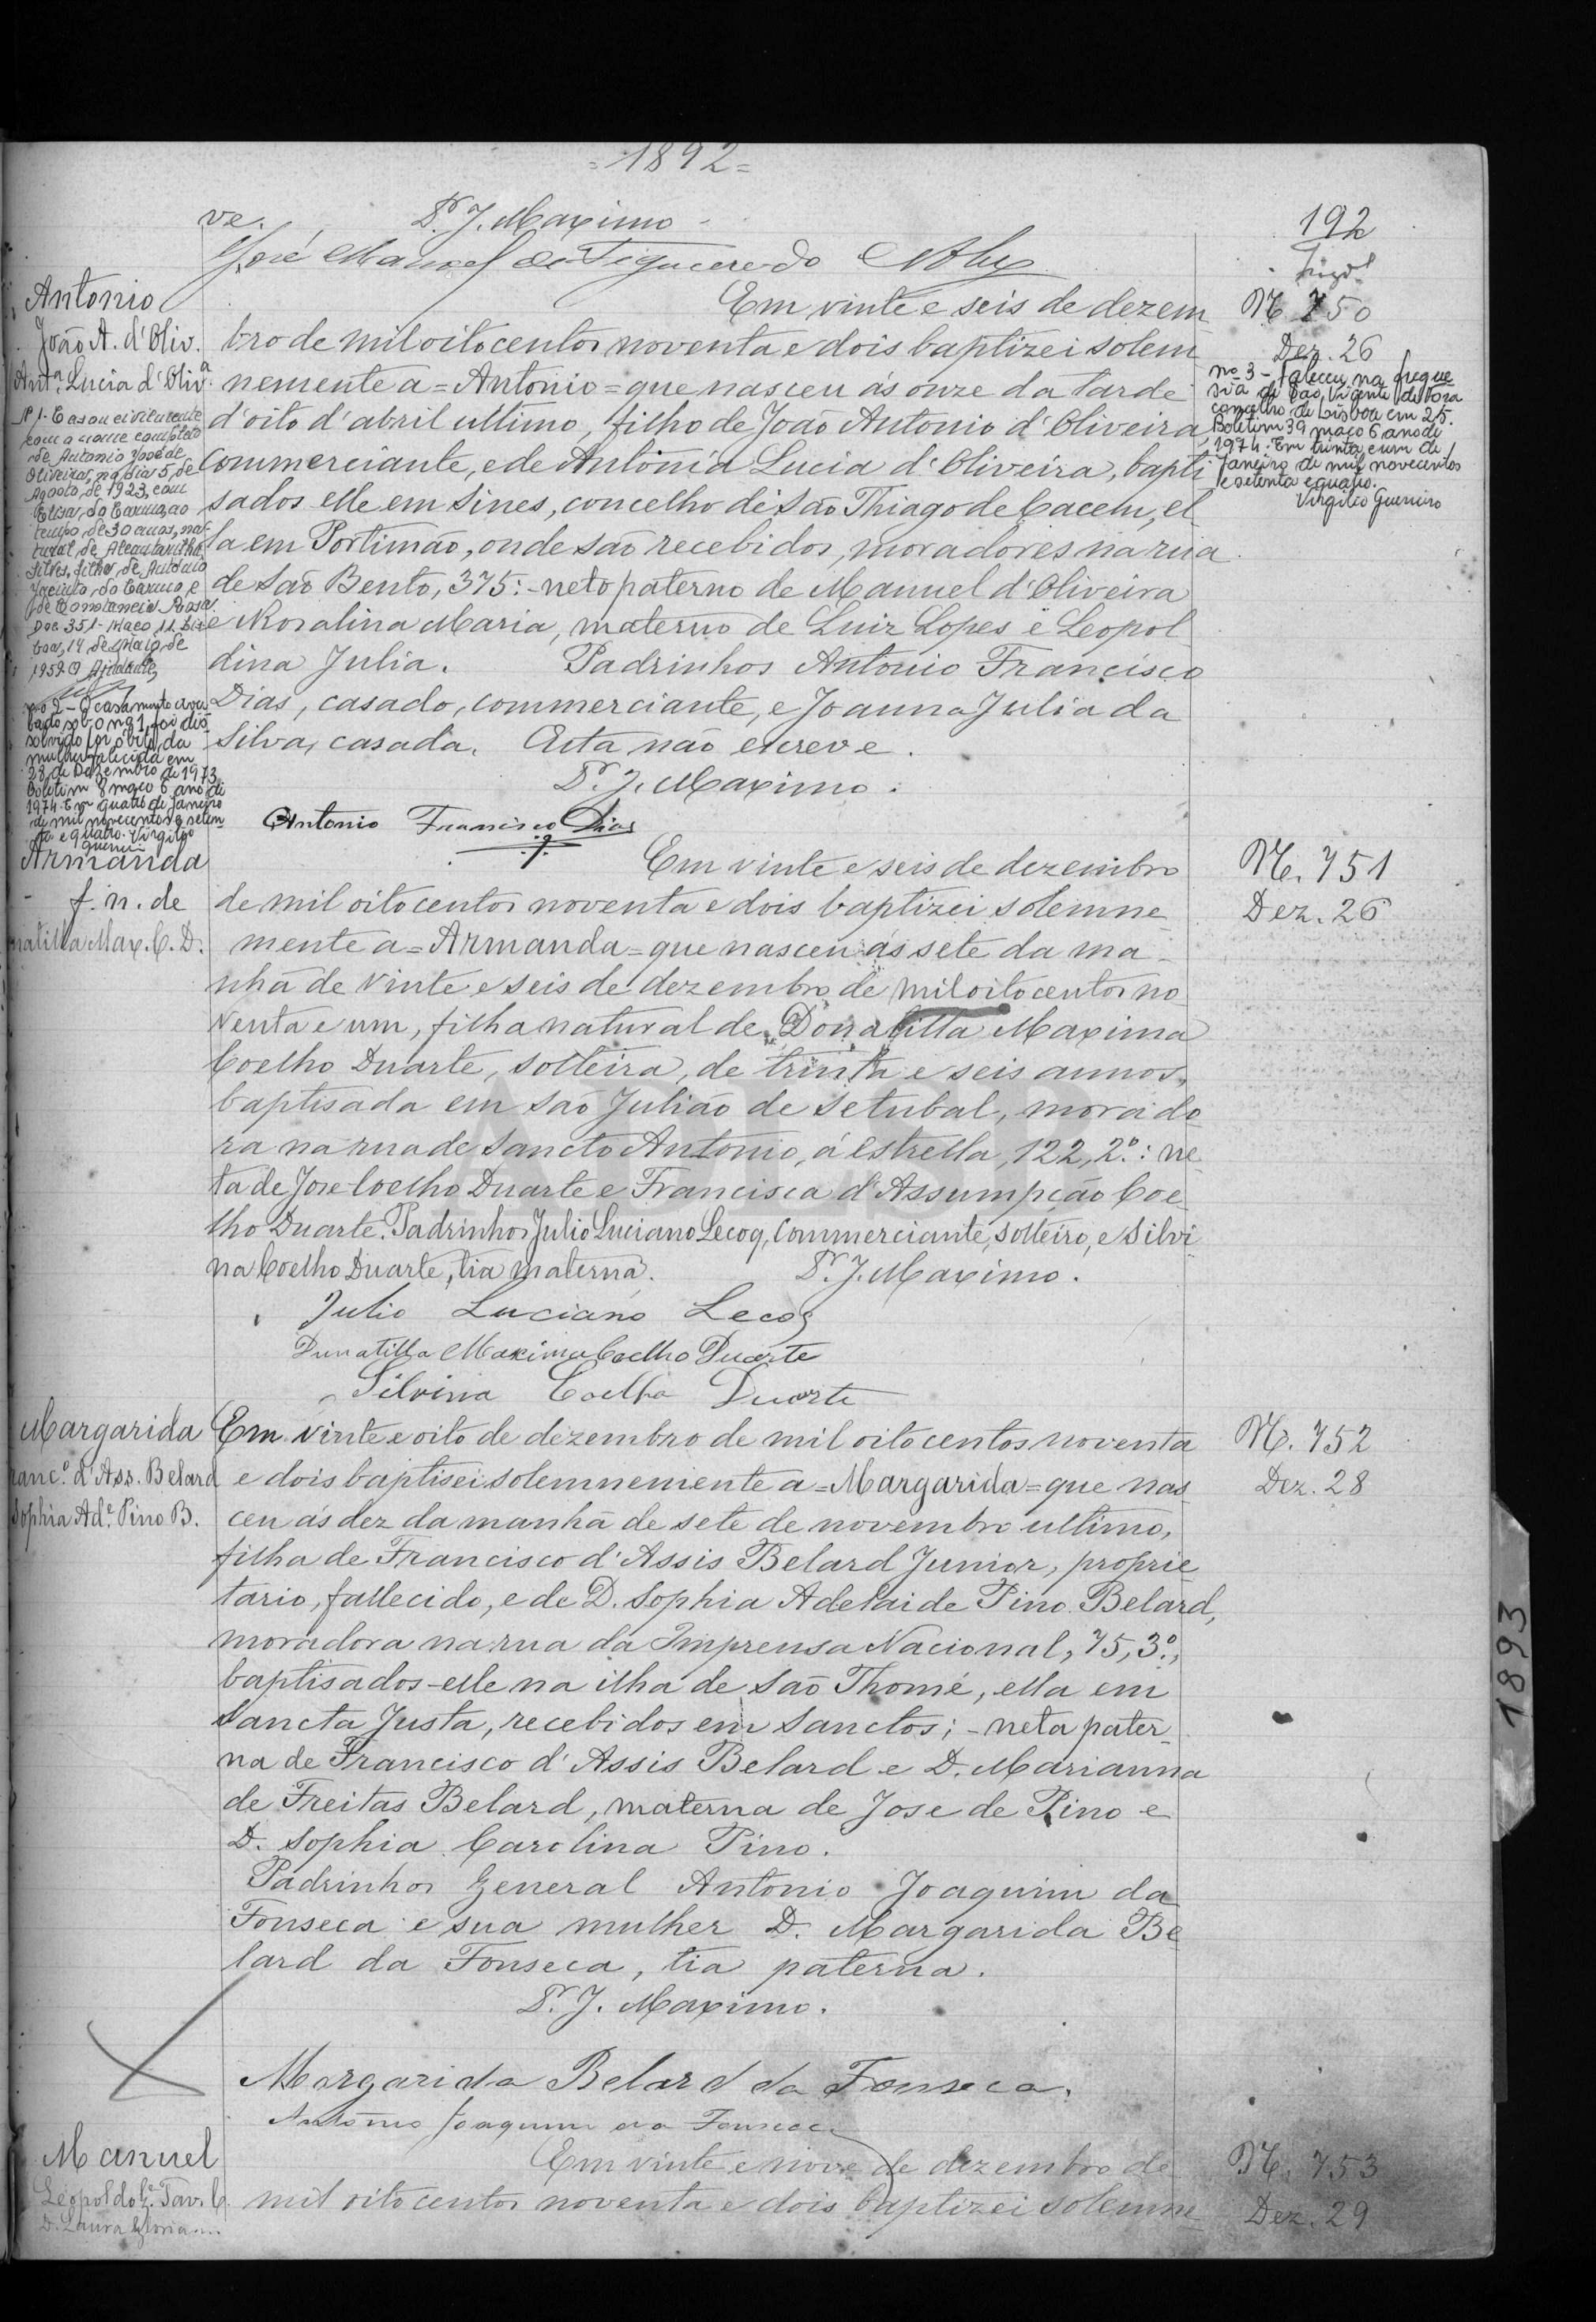 =1892=
192
ve.
Pr. J. Maximo
José Manoel de Figueiredo
Antonio
João A. d'Oliv.
Antª. Lucia d'Olivª.
Nº 1- Casou civilmente
com o nome completo
de Antonio José de
Oliveira, no dia 5, de
Agosto, de 1923, com
Elisa, do Carmo, ao
tempo, de 30 anos, na-
tural, de Alcantarilha
Silves, filha, de Antonio
Jacinto, do Carmo, e
de Constancia Rosa.
Doc. 351- Maço 11. Lis-
boa, 14 de Maio, de
1952. O Ajudante,
nº 2 - O casamento aver-
bado sob o nº 1, foi dis-
solvido por óbito da
mulher falecida em
28 de Dezembro de 1973.
Boletim 8 maço 6 ano de
1974. Em quatro de Janeiro
de mil novecentos e seten-
ta e quatro. Virgilio
Guerreiro
Em vinte e seis de dezem
bro de mil oitocentos noventa e dois baptizei solem
nemente a = Antonio = que nasceu ás onze da tarde
d'oito d'abril ultimo, filho de João Antonio d'Oliveira,
commerciante, e de Antonia Lucia d'Oliveira, bapti
sados elle em Sines, concelho de São Thiago de Cacem, el
la em Portimão, onde são recebidos, moradores na rua
de São Bento, 375: - neto paterno de Manuel d'Oliveira
e Rosalina Maria, materno de Luiz Lopes e Leopol
dina Julia. Padrinhos Antonio Francisco
Dias, casado, commerciante, e Joanna Julia da
Silva, casada. Esta não escreve.
Pr. J. Maximo.
Antonio Francisco Dias
N. 750
Dez. 26
nº 3 - faleceu na fregue
sia de São Vicente de Fora
concelho de Lisboa em 25.
Boletim 39 maço 6 ano de
1974. Em trinta e um de
Janeiro de mil novecentos
e setenta e quatro.
Virgilio Guerreiro
Armanda
f. n. de
natilla Max. C. D.
Em vinte e seis de dezembro
de mil oitocentos noventa e dois baptizei solemne
mente a = Armanda = que nasceu ás sete da ma
nhã de vinte e seis de dezembro de mil oitocentos no
venta e um, filha natural de Donatilla Maxima
Coelho Duarte, solteira, de trinta e seis annos,
baptisada em São Julião de Setubal, morado
ra na rua de Sancto Antonio, á Estrella, 122, 2º.: ne
ta de Jose Coelho Duarte e Francisca d'Assumpção Coe
lho Duarte. Padrinhos Julio Luciano Lecoq, commerciante, solteiro, e Silvi
na Coelho Duarte, tia materna. Pr. J. Maximo.
Julio Luciano Lecoq
Dunatilla Maxima Coelho Duarte
Silvina Coelho Duarte
N. 751
Dez. 26
Margarida
ranc.º d'Ass. Belard
Sophia Ad.e Pino B.
Em vinte e oito de dezembro de mil oitocentos noventa
e dois baptisei solemnemente a = Margarida = que nas
ceu ás dez da manhã de sete de novembro ultimo,
filha de Francisco d'Assis Belard Junior, proprie
tario, fallecido, e de D. Sophia Adelaide Pino Belard,
moradora na rua da Imprensa Nacional, 75, 3º.,
baptisados - elle na ilha de São Thomé, ella em
Sancta Justa, recebidos em Sanctos; - neta pater
na de Francisco d'Assis Belard e D. Marianna
de Freitas Belard, materna de Jose de Pino e
D. Sophia Carolina Pino.
Padrinhos General Antonio Joaquim da
Fonseca e sua mulher D. Margarida Be
lard da Fonseca, tia paterna.
Pr. J. Maximo.
Margarida Belard da Fonseca.
Antonio Joaquim da Fonseca
N. 752
Dez. 28
1893
Manuel
Leopoldo Tav. C.
D. Laura Gloria
Em vinte e nove de dezembro de
mil oitocentos noventa e dois baptizei solemne
N. 753
Dez. 29